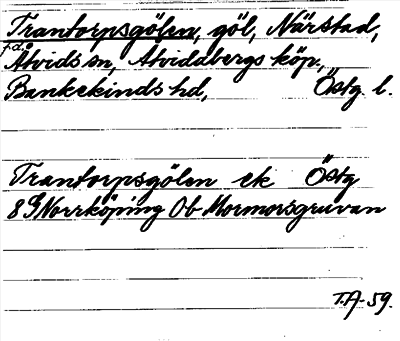 Trantorpsgölen, göl, Närstad,
f.d.
Åtvids sn, Åtvidabergs köp.,
Bankekinds hd, Östg l.
Trantorpsgölen ek Östg
8 G Norrköping Ob Mormorsgruvan
T.A. 59.